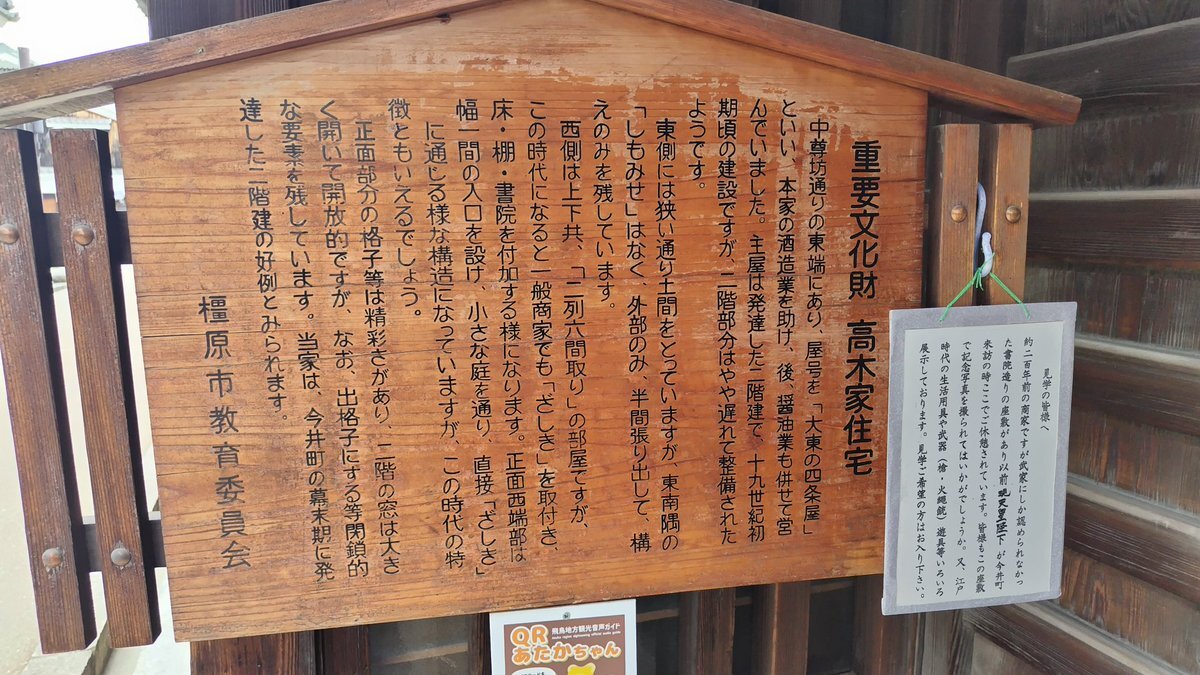 重要文化財 高木家住宅
中尊坊通りの東端にあり、屋号を「大東の四条屋」
といい、本家の酒造業を助け、後、醤油業も併せて営
んでいました。主屋は発達した二階建で、十九世紀初
期頃の建設ですが、二階部分はやや遅れて整備された
ようです。
東側には狭い通り土間をとっていますが、東南隅の
「しもみせ」はなく、外部のみ、半間張り出して、構
えのみを残しています。
西側は上下共、「二列六間取り」の部屋ですが、
この時代になると一般商家でも「ざしき」を取付き、
床・棚・書院を付加する様になります。正面西端部は
幅一間の入口を設け、小さな庭を通り、直接「ざしき」
に通じる様な構造になっていますが、この時代の特
徴ともいえるでしょう。
正面部分の格子等は精彩さがあり、二階の窓は大き
く開いて開放的ですが、なお、出格子にする等閉鎖的
な要素を残しています。当家は、今井町の幕末期に発
達した二階建の好例とみられます。
橿原市教育委員会
見学の皆様へ
約二百年前の商家ですが武家にしか認められなかっ
た書院造りの座敷があり以前 現天皇陛下 が今井町
来訪の時ここでご休憩されています。皆様もこの座敷
で記念写真を撮られてはいかがでしょうか。又、江戸
時代の生活用具や武器（槍・火縄銃）遊具等いろいろ
展示しております。見学ご希望の方はお入り下さい。
QR 飛鳥地方観光音声ガイド
あたかちゃん